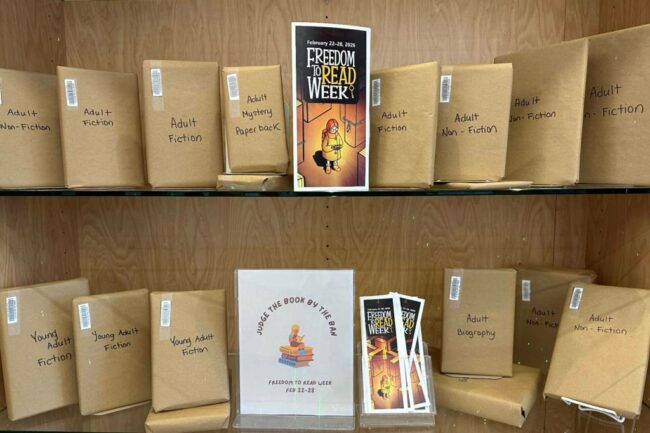 Adult
Non-Fiction
Adult
Fiction
Adult
Fiction
Adult
Mystery
Paperback
February 22-28, 2026
FREEDOM
TO READ
WEEK
Adult
Fiction
Adult
Non-Fiction
Adult
Non-Fiction
Adult
Non-Fiction
Young Adult
Fiction
Young Adult
Fiction
Young Adult
Fiction
JUDGE THE BOOK BY THE BAN
FREEDOM TO READ WEEK
FEB 22-28
FREEDOM
TO READ
WEEK
Adult
Biography
Adult
Non-Fiction
Adult
Non-Fiction